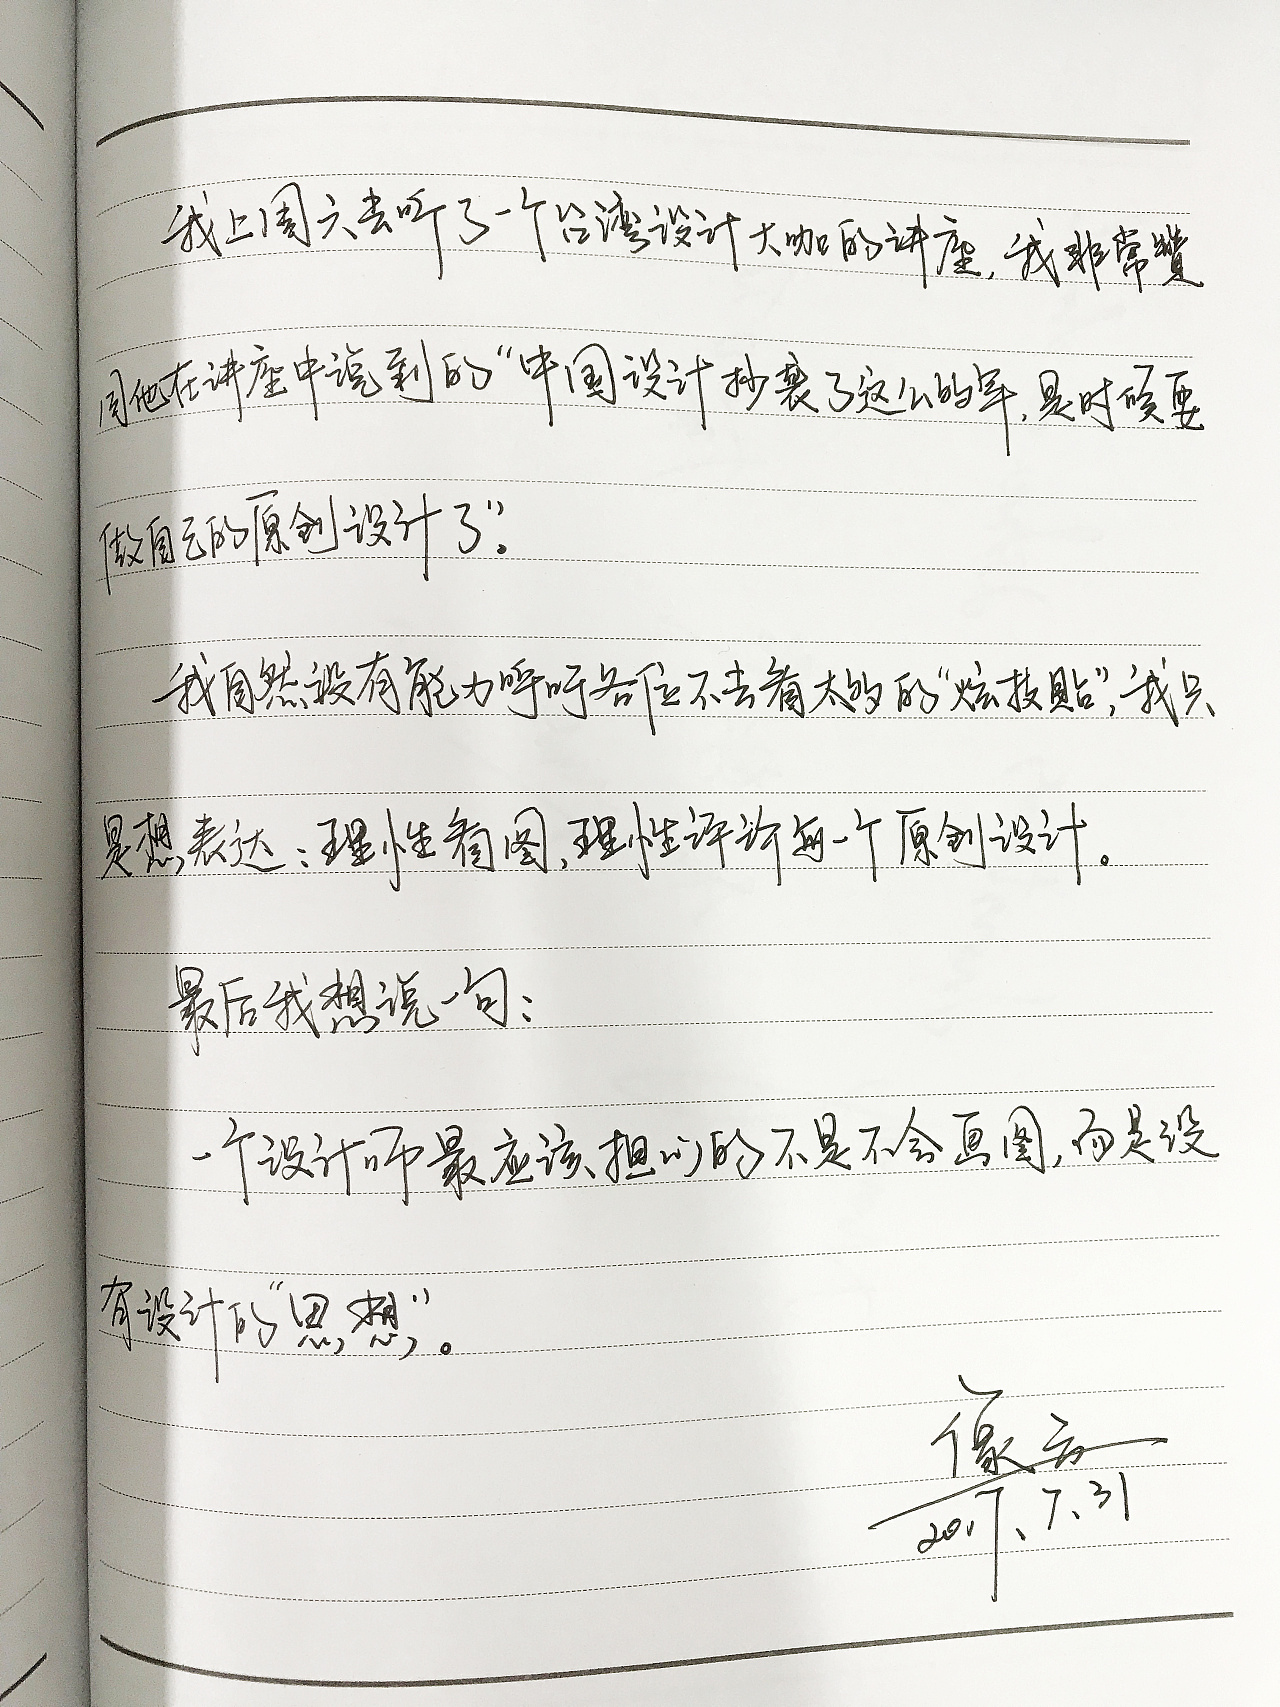 我上周六去听了一个台湾设计大咖的讲座，我非常赞
同他在讲座中说到的“中国设计抄袭了这么的年，是时候要
做自己的原创设计了”。
我自然没有能力呼吁各位不去看太多的“炫技贴”，我只
是想表达：理性看图，理性评论每一个原创设计。
最后我想说一句：
一个设计师最应该担心的不是不会画图，而是没
有设计的“思想”。
2017.7.31